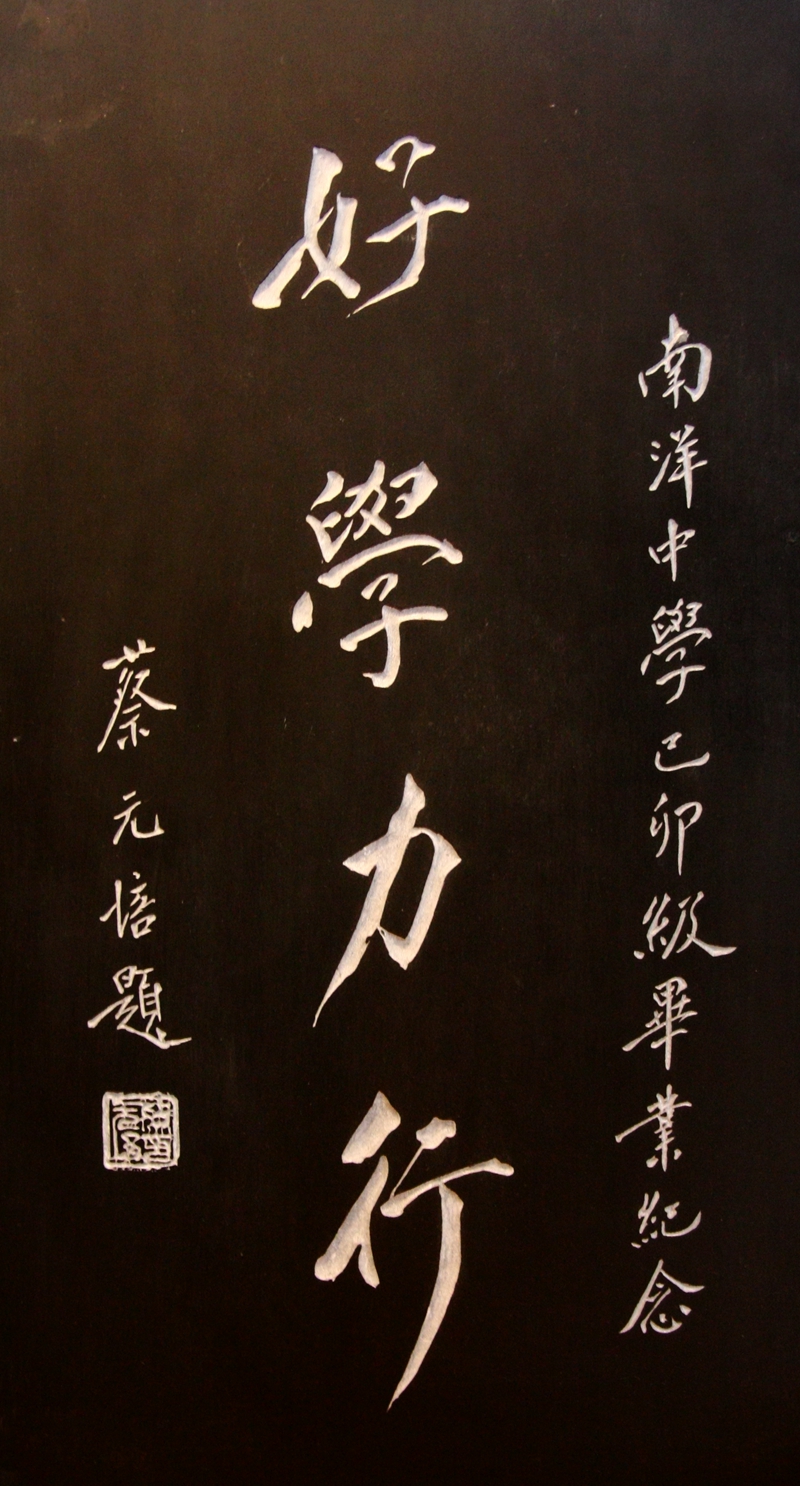 南洋中學己卯級畢業紀念
好學力行
蔡元培題